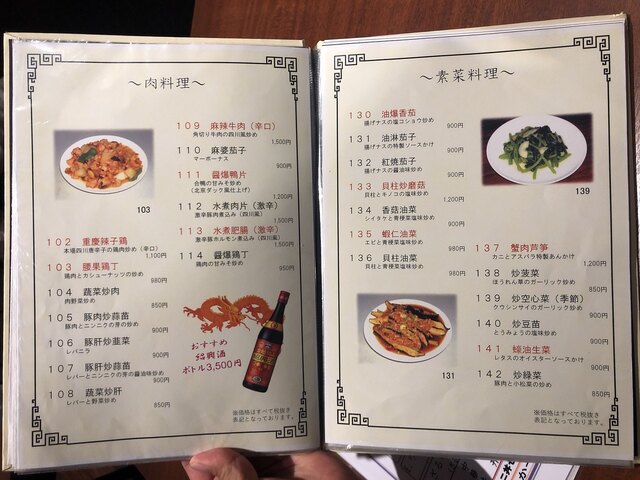 ～肉料理～
109 麻辣牛肉（辛口）
角切り牛肉の四川風炒め
1,500円
110 麻婆茄子
マーボーナス
900円
111 醤爆鴨片
合鴨の甘みそ炒め
(北京ダック風仕上げ)
1,200円
112 水煮肉片（激辛）
激辛豚肉煮込み（四川風）
1,500円
113 水煮肥腸（激辛）
激辛豚ホルモン煮込み（四川風）
1,500円
114 醤爆鶏丁
鶏肉の甘みそ炒め
950円
103
102 重慶辣子鶏
本場四川唐辛子の鶏肉炒め（辛口）
1,100円
103 腰果鶏丁
鶏肉とカシューナッツの炒め
980円
104 蔬菜炒肉
肉野菜炒め
850円
105 豚肉炒蒜苗
豚肉とニンニクの芽の炒め
900円
106 豚肝炒韮菜
レバニラ
900円
107 豚肝炒蒜苗
レバーとニンニクの芽の醤油炒め
900円
108 蔬菜炒肝
レバーと野菜炒め
850円
おすすめ
紹興酒
ボトル3,500円
※価格はすべて税抜き
表記となっております。
～素菜料理～
130 油爆香茄
揚げナスの塩コショウ炒め
900円
131 油淋茄子
揚げナスの特製ソースかけ
900円
132 紅焼茄子
揚げナスの醤油味炒め
900円
133 貝柱炒磨菇
貝柱とキノコの塩味炒め
1,200円
134 香菇油菜
シイタケと青梗菜塩味炒め
900円
135 蝦仁油菜
エビと青梗菜塩味炒め
980円
136 貝柱油菜
貝柱と青梗菜塩味炒め
980円
139
131
137 蟹肉芦笋
カニとアスパラ特製あんかけ
1,200円
138 炒菠菜
ほうれん草のガーリック炒め
850円
139 炒空心菜（季節）
クウシンサイのガーリック炒め
950円
140 炒豆苗
とうみょうの塩味炒め
900円
141 蠔油生菜
レタスのオイスターソースかけ
900円
142 炒緑菜
豚肉と小松菜の炒め
850円
※価格はすべて税抜き
表記となっております。